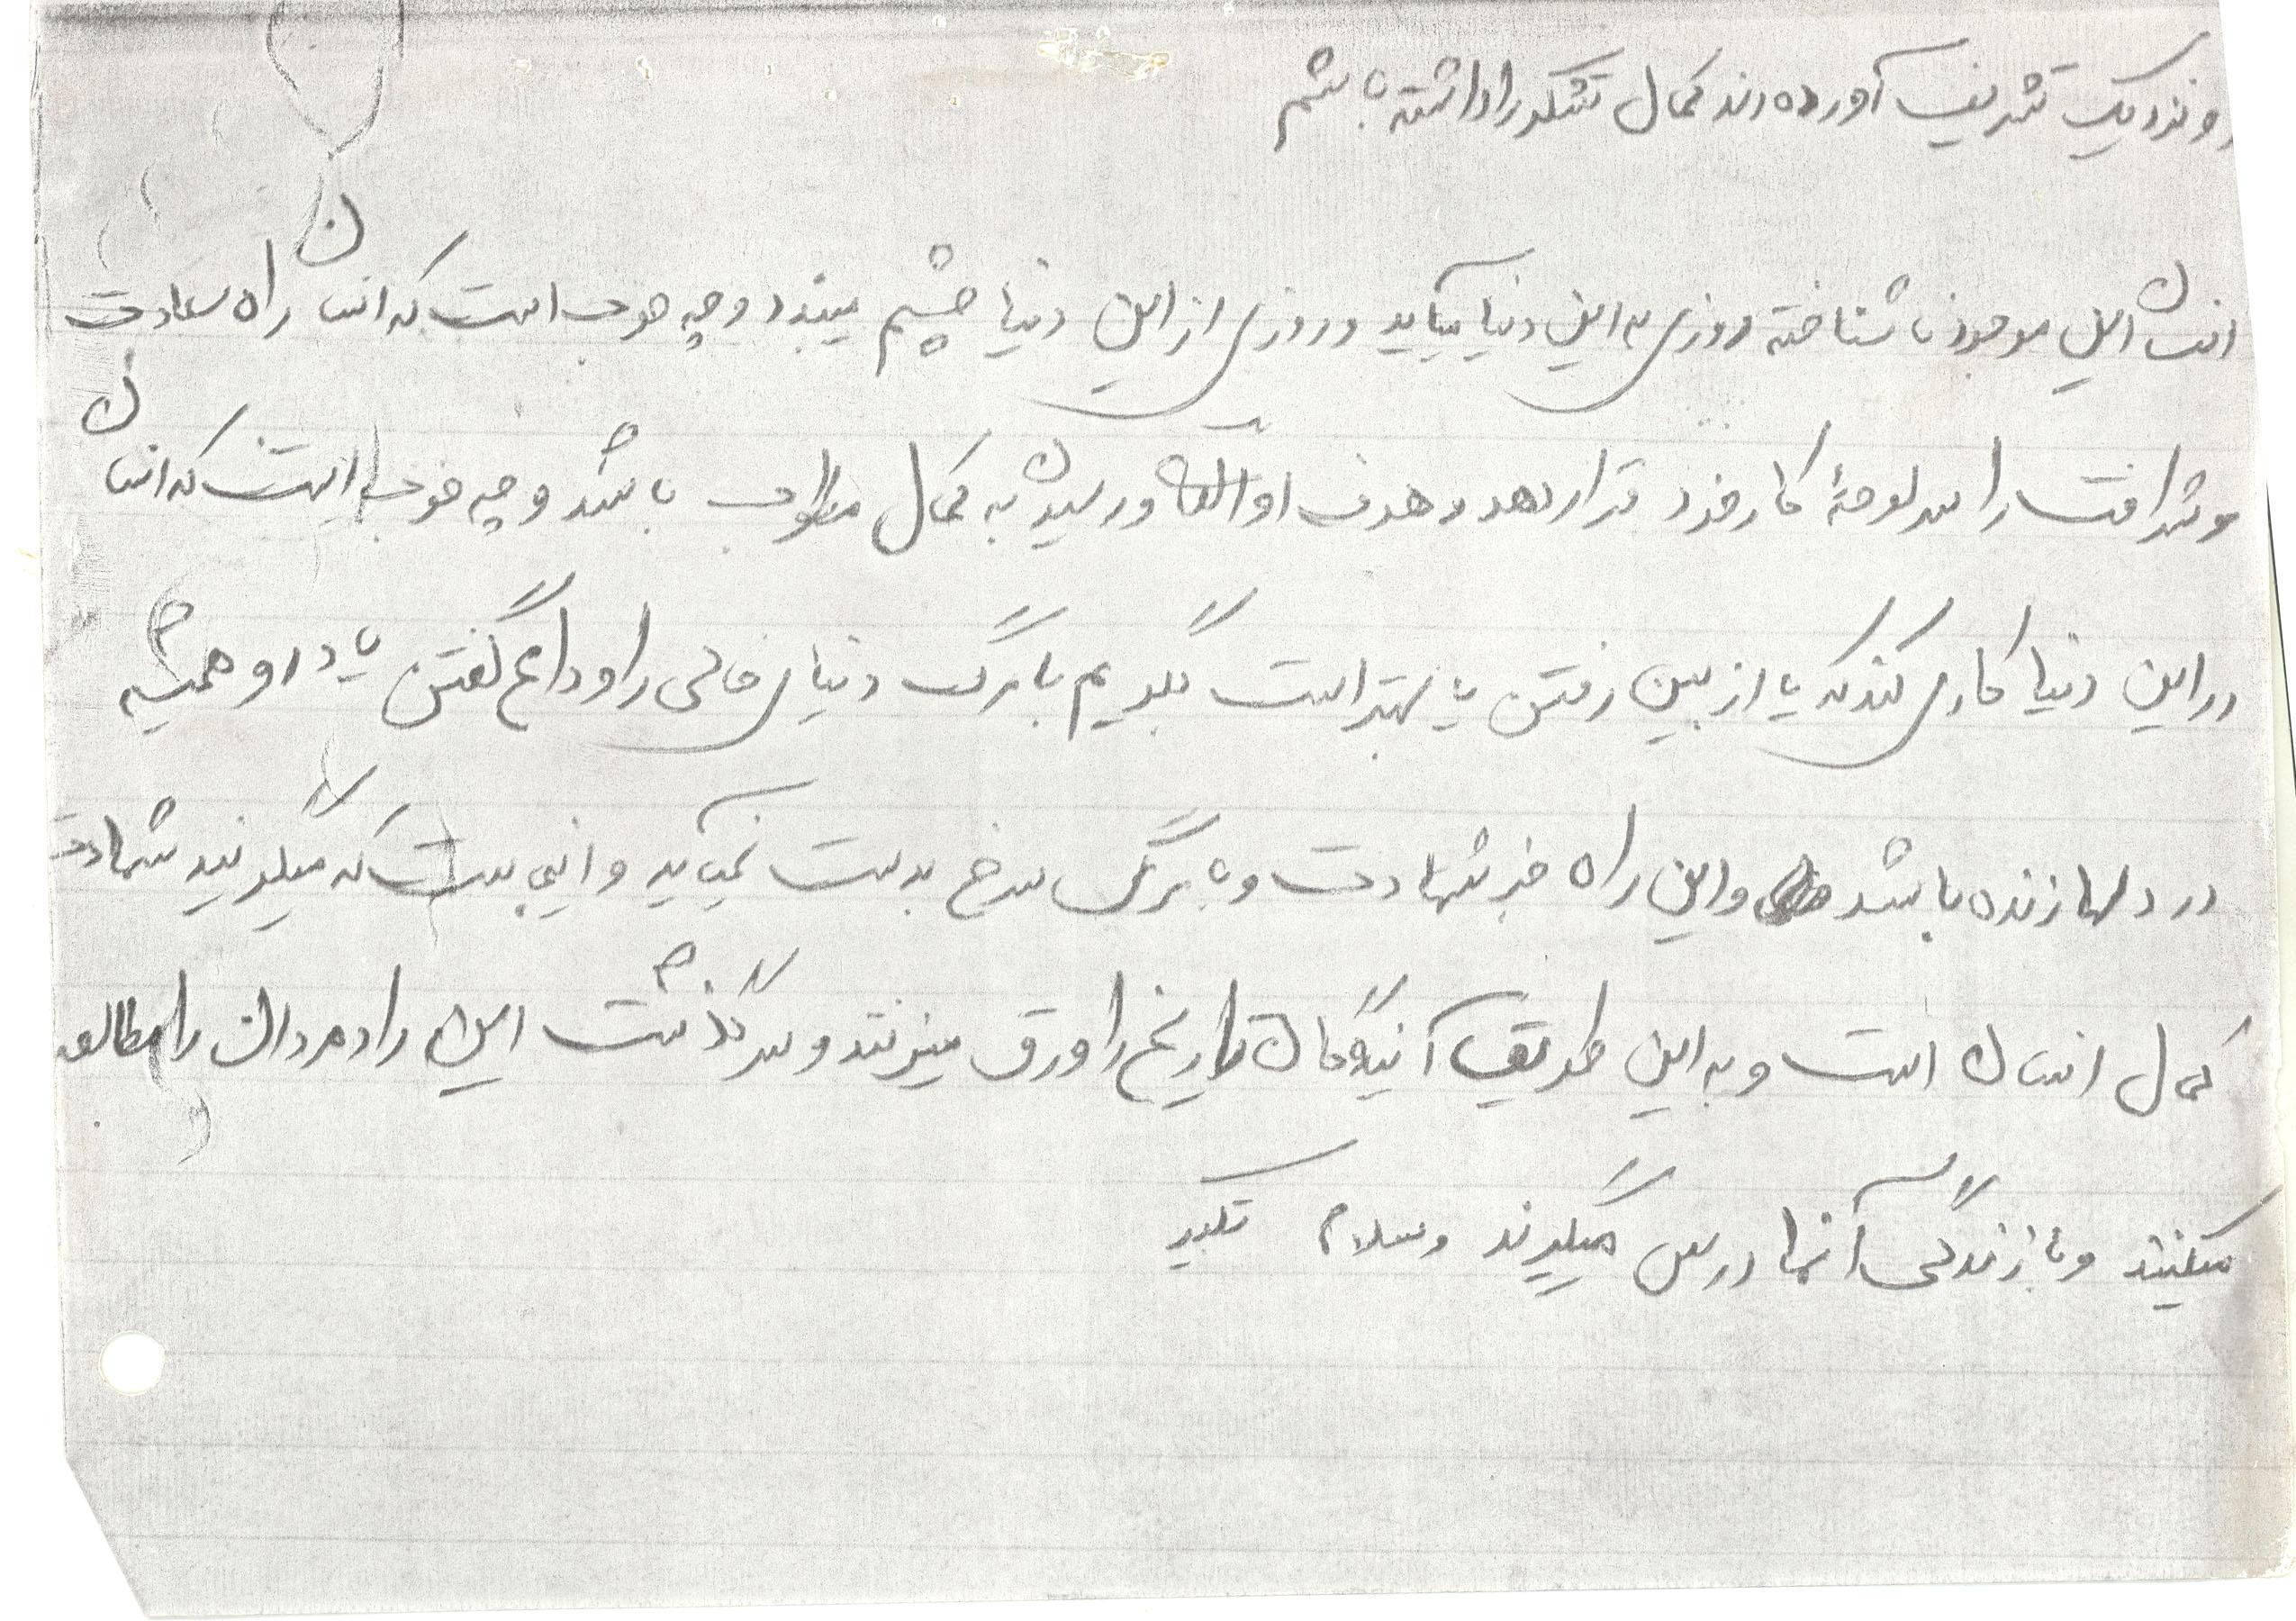 و نزدیک تشریف آورده‌اند کمال تشکر را داشته باشم
انسان این موجود ناشناخته روزی به این دنیا میآید و روزی از این دنیا چشم میبندد و چه خوب است که انسان راه سعادت
و شرافت را سرلوحهٔ کار خود قرار دهد و هدف او الله و رسیدن به کمال مطلوب باشد و چه خوب است که انسان
در این دنیا کاری کند که با از بین رفتن یا بهتر است بگویم با مرگ دنیای فانی را وداع گفتن یاد او همیشه
در دلها زنده باشد و این راه جز شهادت و با مرگ سرخ بدست نمیآید و اینجاست که میگویند شهادت
کمال انسان است و به این طریق آیندگان تاریخ را ورق میزنند و سرگذشت این رادمردان را مطالعه
میکنند و از زندگی آنها درس میگیرند وسلام تکبیر